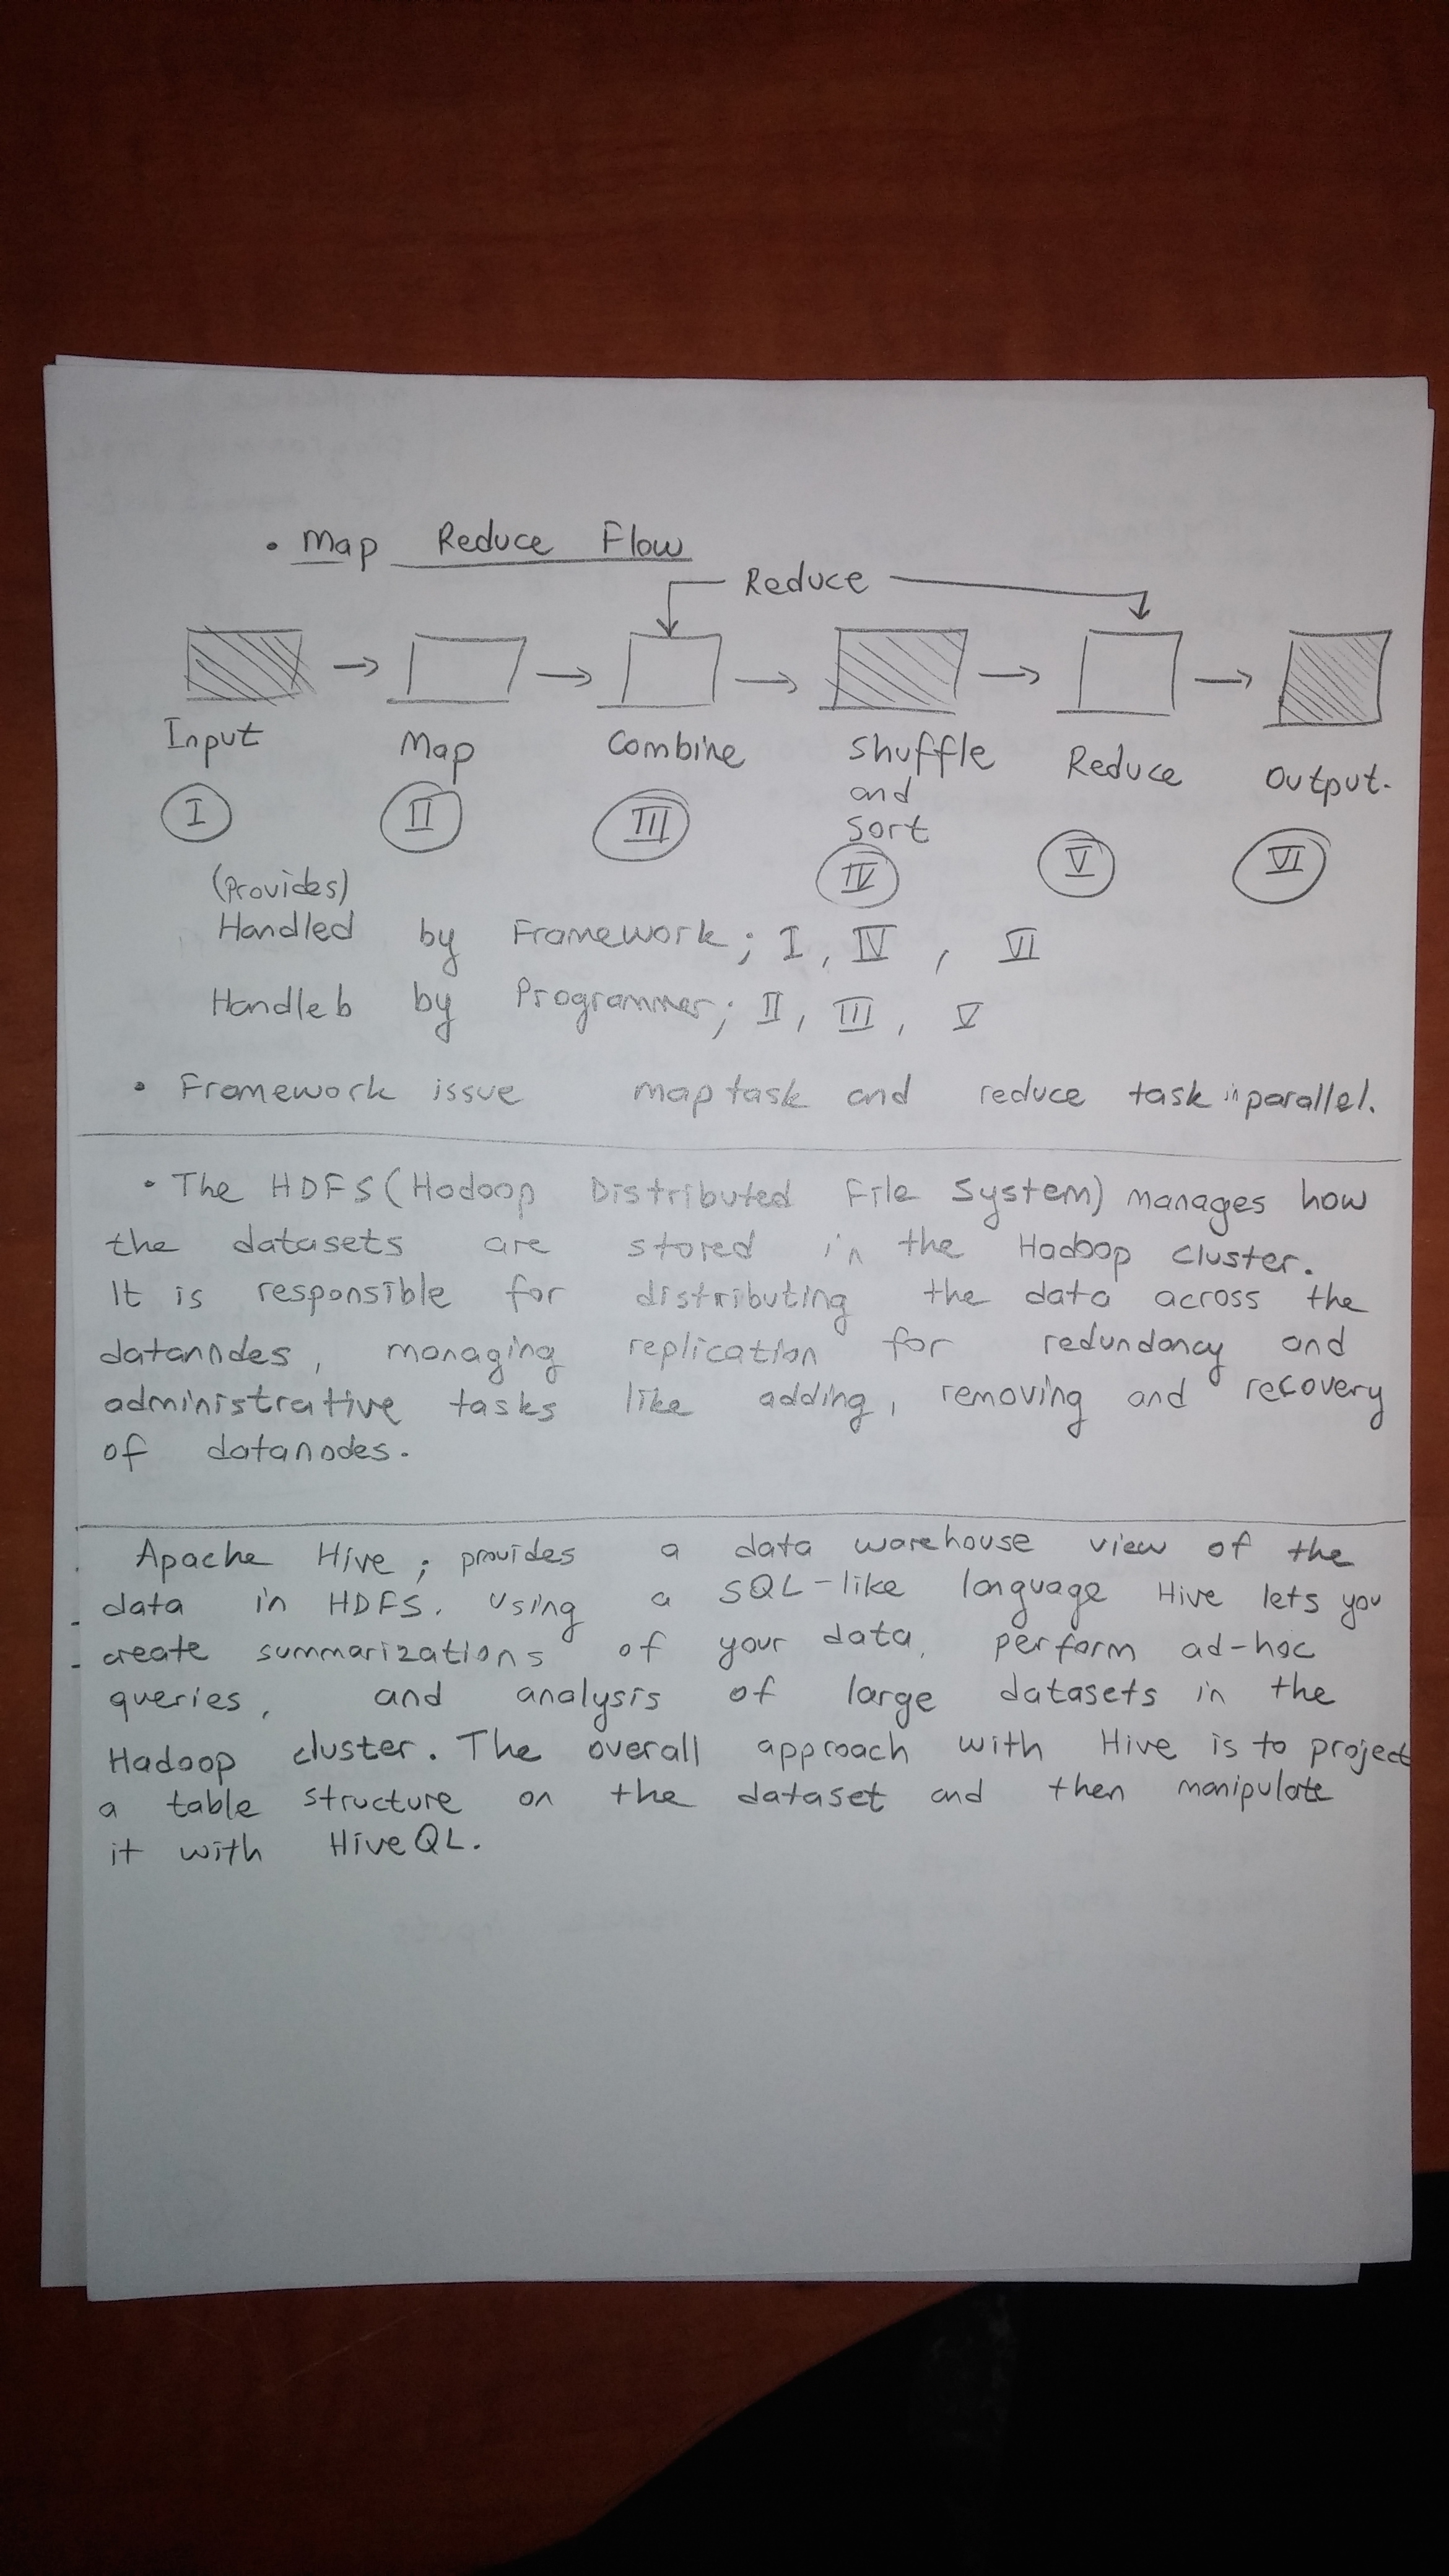 • Map Reduce Flow
Reduce
Input
Map
Combine
Shuffle
and
sort
Reduce
Output.
I
II
III
IV
V
VI
(Provides)
Handled by Framework; I, IV, VI
Handleb by Programmer; II, III, V
• Framework issue map task and reduce task in parallel.
• The HDFS (Hadoop Distributed File System) manages how
the datasets are stored in the Hadoop cluster.
It is responsible for distributing the data across the
datanodes, managing replication for redundancy and
administrative tasks like adding, removing and recovery
of datanodes.
Apache Hive; provides a data warehouse view of the
data in HDFS. Using a SQL-like language Hive lets you
create summarizations of your data, perform ad-hoc
queries, and analysis of large datasets in the
Hadoop cluster. The overall approach with Hive is to project
a table structure on the dataset and then manipulate
it with HiveQL.